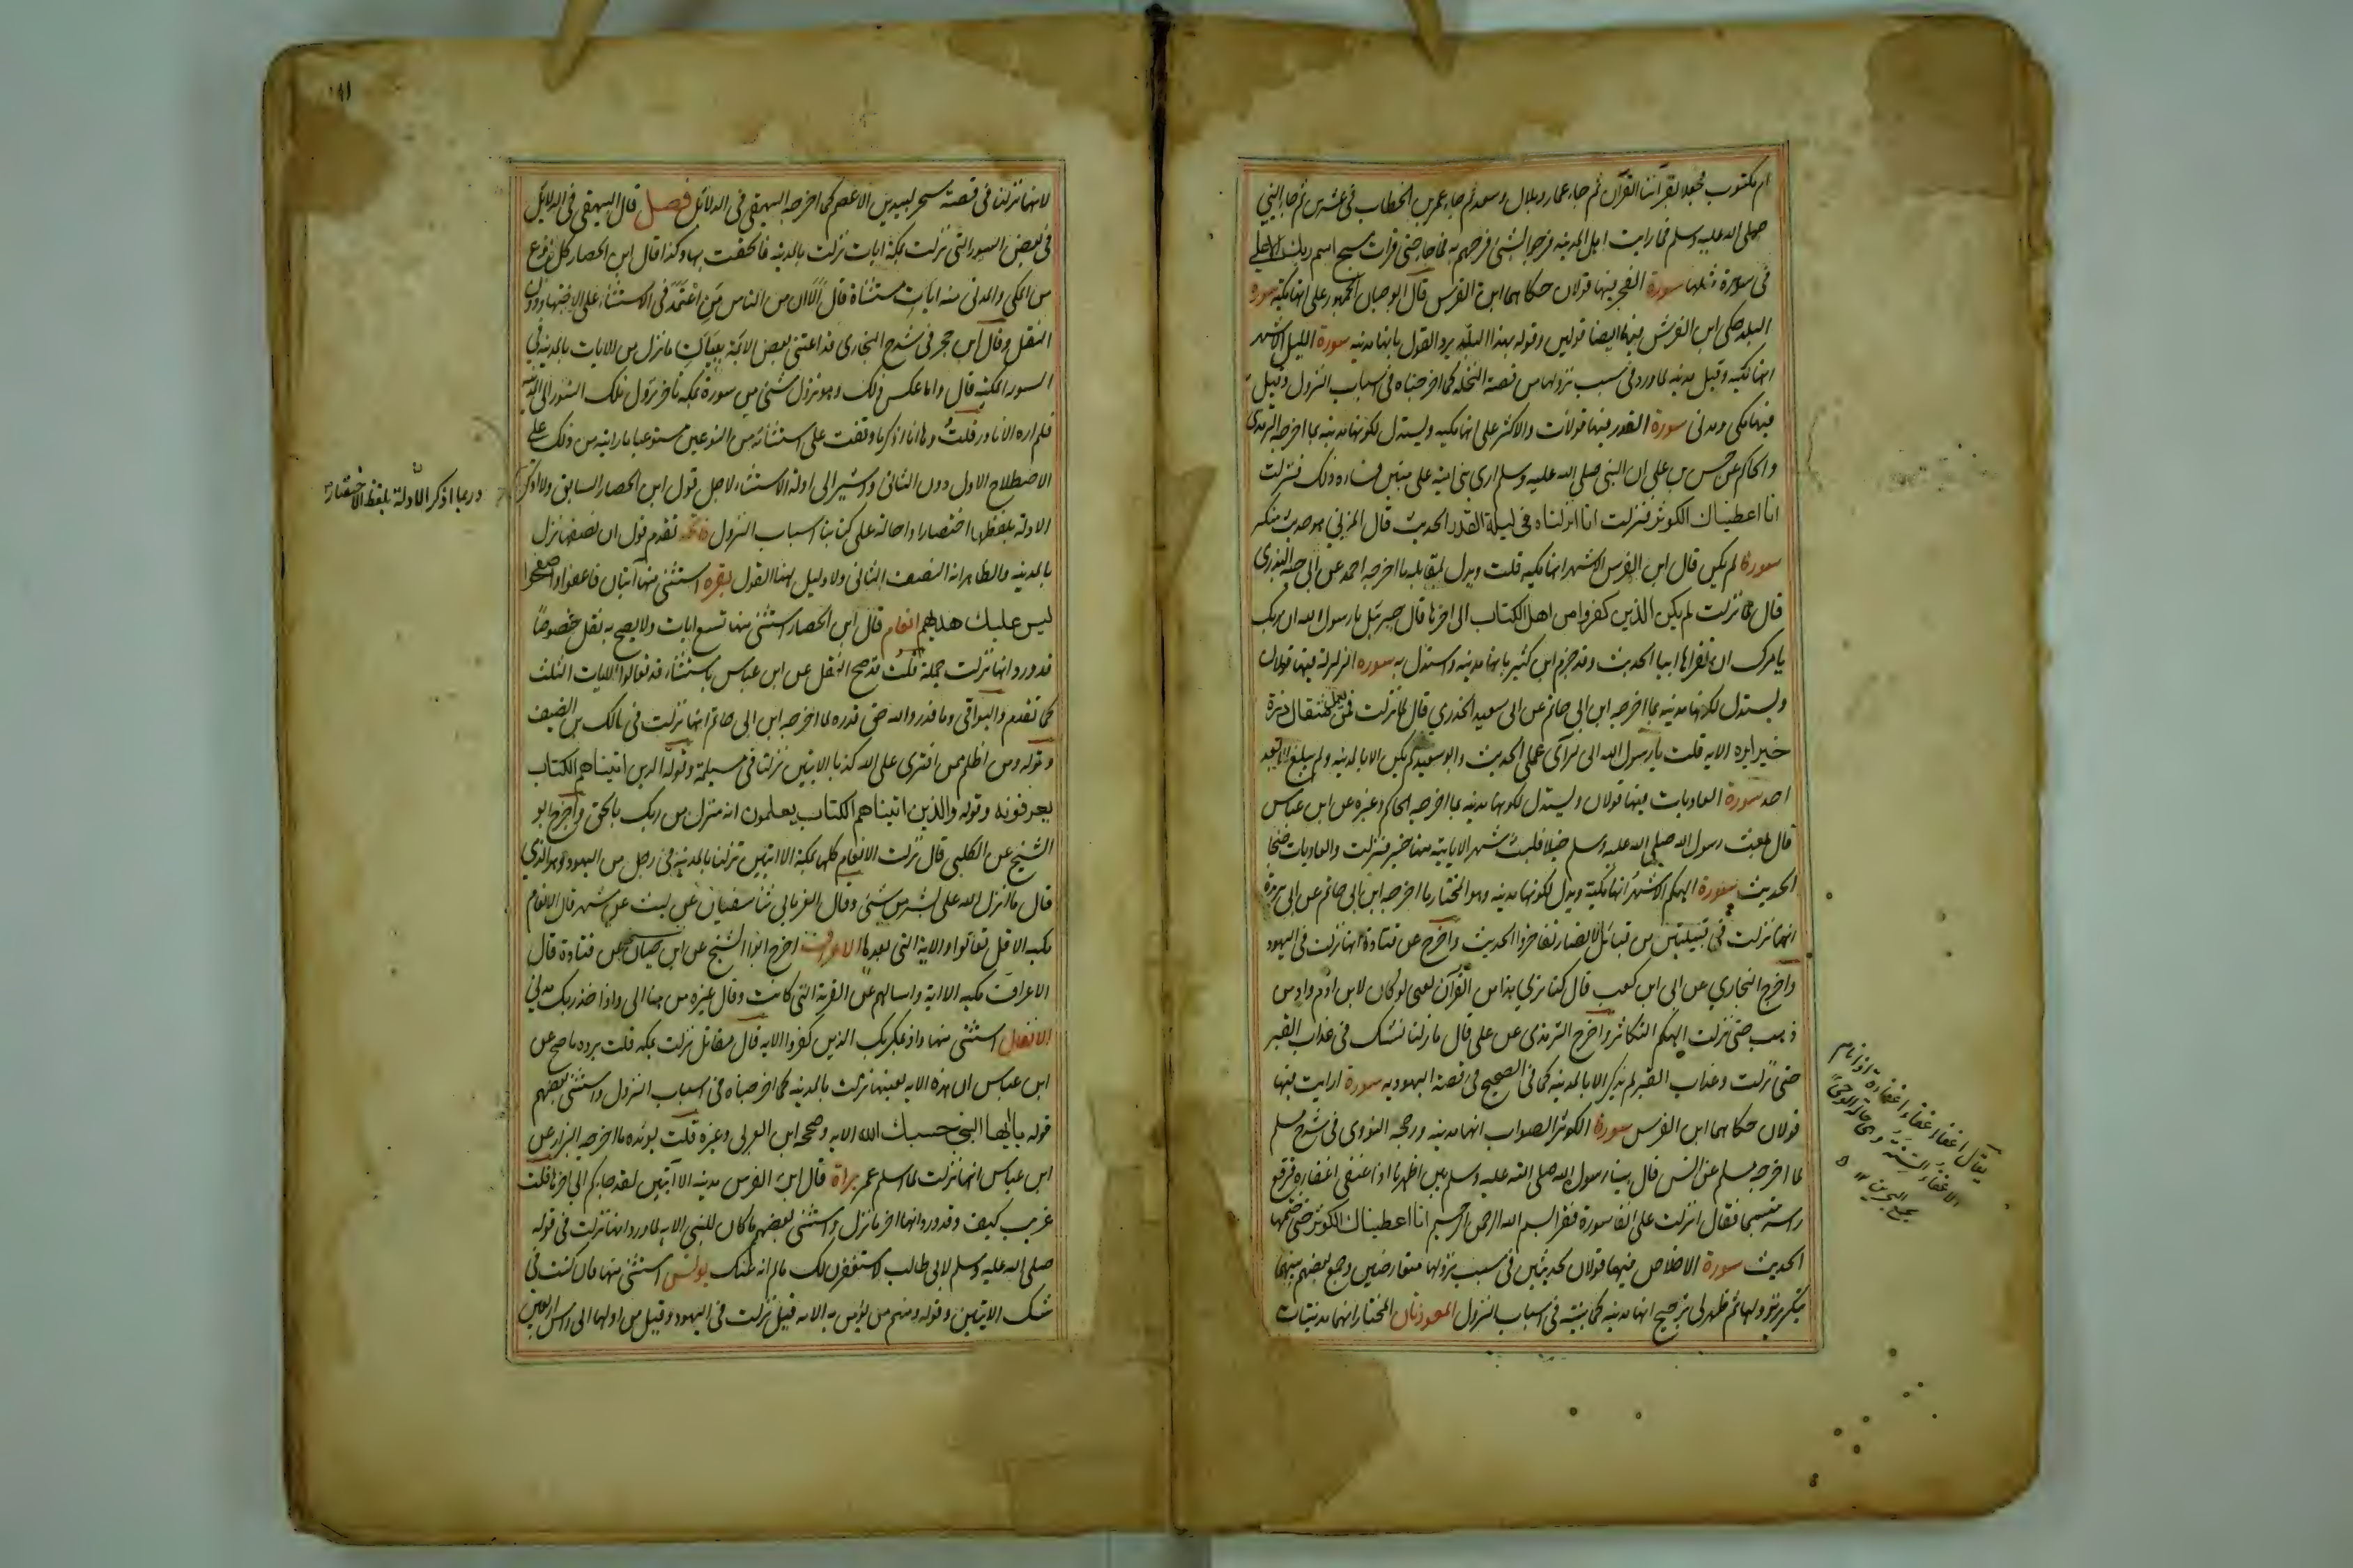 ام مكتوب فجعلا يقرآننا القرآن ثم جاء عمار وبلال وسعد ثم جاء عمر بن الخطاب في عشرين ثم جاء النبي
صلى الله عليه وسلم فما رايت اهل المدينه فرحوا بشئ فرحهم به فما جاء حتى قرات سبح اسم ربك الاعلى
في سورة مثلها سورة الفجر فيها قولان حكاهما ابن الفرس قال ابو حيان الجمهور على انها مكية سورة
البلد حكى ابن الفرس فيها ايضا قولين وقوله بهذا البلد يرد القول بانها مدنيه سورة الليل الاشهر
انها مكيه وقيل مدنيه لما ورد في سبب نزولها من قصة النخله كما اخرجناه في اسباب النزول وقيل
فيها مكى ومدنى سورة القدر فيها قولان والاكثر على انها مكيه ويستدل لكونها مدنيه بما اخرجه الترمذى
والحاكم عن حسن بن على ان النبى صلى الله عليه وسلم ارى بنى اميه على منبره فساءه ذلك فنزلت
انا اعطيناك الكوثر فنزلت انا انزلناه فى ليلة القدر الحديث قال المزني هو حديث منكر
سورة لم يكن قال ابن الفرس الاشهر انها مكيه قلت ويدل لمقابله ما اخرجه احمد عن ابى حبه البدرى
قال لما نزلت لم يكن الذين كفروا من اهل الكتاب الى اخرها قال جبرئيل يا رسول الله ان ربك
يامرك ان تقراها ابيا الحديث وقد جزم ابن كثير بانها مدنيه واستدل به سوره الزلزلة فيها قولان
ويستدل لكونها مدنيه بما اخرجه ابن ابى حاتم عن ابى سعيد الخدري قال لما نزلت فمن يعمل مثقال ذرة
خيرا يره الايه قلت يا رسول الله انى لرآى عملى الحديث وابو سعيد لم يكن الا بالمدينه ولم يبلغ الا بعد
احد سورة العاديات فيها قولان ويستدل لكونها مدنيه بما اخرجه الحاكم وغيره عن ابن عباس
قال بعث رسول الله صلى الله عليه وسلم خيلا فلبثت شهرا لا ياتيه منها خبر فنزلت والعاديات ضبحا
الحديث سورة الهيكم الاشهر انها مكية ويدل لكونها مدنيه وهو المختار ما اخرجه ابن ابى حاتم عن ابى بريدة
انها نزلت في قبيلتين من قبائل الانصار تفاخروا الحديث واخرج عن قتادة انها نزلت فى اليهود
واخرج البخاري عن ابى ابن كعب قال كنا نرى هذا من القرآن لعنى لو كان لابن ادم واد من
ذهب حتى نزلت الهيكم التكاثر واخرج الترمذى عن على قال مازلنا نشك فى عذاب القبر
حتى نزلت وعذاب القبر لم يذكر الا بالمدينه كما فى الصحيح فى قصة اليهوديه سورة ارايت فيها
قولان حكاهما ابن الفرس سورة الكوثر الصواب انها مدنيه ورجحه النووى فى شرح مسلم
لما اخرجه مسلم عن انس قال بينا رسول الله صلى الله عليه وسلم بين اظهرنا اذ اغفى اغفاءه فرفع
راسه متبسما فقال انزلت على انفا سورة فقرا بسم الله الرحمن الرحيم انا اعطيناك الكوثر حتى ختمها
الحديث سورة الاخلاص فيها قولان لحديثين فى سبب نزولها متعارضين وجمع بعضهم بينهما
بتكرر نزولها ثم ظهر لى ترجيح انها مدنيه كما بينته فى اسباب النزول المعوذتان المختار انهما مدنيتان
يقال اغفا اغفاء اغفاءة اذا نام
الاغفاء السنة وهى حالة الوحى
مجمع البحرين ١٢
لانهما نزلتا فى قصة سحر لبيد بن الاعصم كما اخرجه البيهقى فى الدلائل فصل قال البيهقى فى الدلائل
فى بعض السور التى نزلت بمكة ايات نزلت بالمدينه فالحقت بها وكذا قال ابن الحصار كل نوع
من المكى والمدنى منه ايات مستثناة قال الا ان من الناس من اعتمد فى الاستثناء على الاجتهاد دون
النقل وقال ابن حجر فى شرح البخارى قد اعتنى بعض الائمة ببيان ما نزل من الايات بالمدينه في
السور المكيه قال واما عكس ذلك وهو نزول شئ من سورة بمكه تاخر نزول تلك السور الى المدينه
فلم اره الا نادرا قلت وها انا اذكر ما وقفت على استثنائه من النوعين مستوعبا ما رايته من ذلك على
الاصطلاح الاول دون الثانى واشير الى ادلة الاستثناء لاجل قول ابن الحصار السابق ولا اذكر
وربما اذكر الادلة بلفظ الاختصار
الادلة بلفظها اختصارا واحالة على كتابنا اسباب النزول فاتحه تقدم قول ان نصفها نزل
بالمدينه والظاهر انه النصف الثانى ولا دليل لهذا القول بقره استثنى منها آيتان فاعفوا واصفحوا
ليس عليك هداهم انعام قال ابن الحصار استثنى منها تسع ايات ولا يصح به نقل خصوصا
قد ورد انها نزلت جملة قلت قد صح النقل عن ابن عباس باستثناء قد تعالوا الايات الثلث
كما تقدم والبواقى وما قدروا الله حق قدره لما اخرجه ابن ابى حاتم انها نزلت فى مالك بن الضيف
وقوله ومن اظلم ممن افترى على الله كذبا الايتين نزلتا فى مسيلمة وقوله الذين اتيناهم الكتاب
يعرفونه وقوله والذين اتيناهم الكتاب يعلمون انه منزل من ربك بالحق واخرج ابو
الشيخ عن الكلبى قال نزلت الانعام كلها بمكة الا ايتين نزلتا بالمدينه فى رجل من اليهود وهو الذي
قال ما انزل الله على بشر من شئ وقال الفريابى ثنا سفيان عن ليث عن بشر قال الانعام
مكيه الا قل تعالوا والاية التى بعدها الاعراف اخرج ابو الشيخ عن ابن حيان عن قتادة قال
الاعراف مكيه الا اية واسالهم عن القرية التى كانت وقال غيره من هنا الى واذ اخذ ربك مدني
الانفال استثنى منها واذ يمكر بك الذين كفروا الايه قال مقاتل نزلت بمكه قلت يرده ما صح عن
ابن عباس ان هذه الايه بعينها نزلت بالمدينه كما اخرجناه فى اسباب النزول واستثنى بعضهم
قوله يا ايها النبى حسبك الله الايه وصححه ابن العربى وغيره قلت يؤيده ما اخرجه البزار عن
ابن عباس انها نزلت لما اسلم عمر براة قال ابن الفرس مدنيه الا آيتين لقد جاءكم الى اخرها قلت
غريب كيف وقد ورد انها اخر ما نزل واستثنى بعضهم ما كان للنبى الايه لما ورد انها نزلت فى قوله
صلى الله عليه وسلم لابى طالب لاستغفرن لك ما لم انه عنك يونس استثنى منها فان كنت فى
شك الايتين وقوله ومنهم من يؤمن به الايه قيل نزلت فى اليهود وقيل من اولها الى راس اربعين